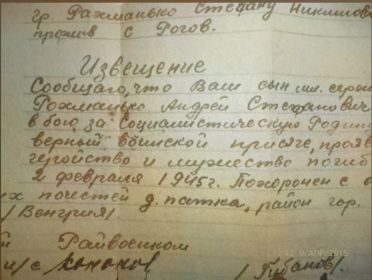 гр. Рахманько Стефану Никит
прожив с Рогов.
Извещение
Сообщаю, что Ваш сын мл. серж
Рохманько Андрей Стефанович
в бою за Социалистическую Родин
верный воинской присяге, прояв
геройство и мужество погиб
2 февраля 1945г. Похоронен с о
х почестей д. патка, район гор.
/Венгрия/
й Райвоенком
/Губанов/.
9/АПР/2015